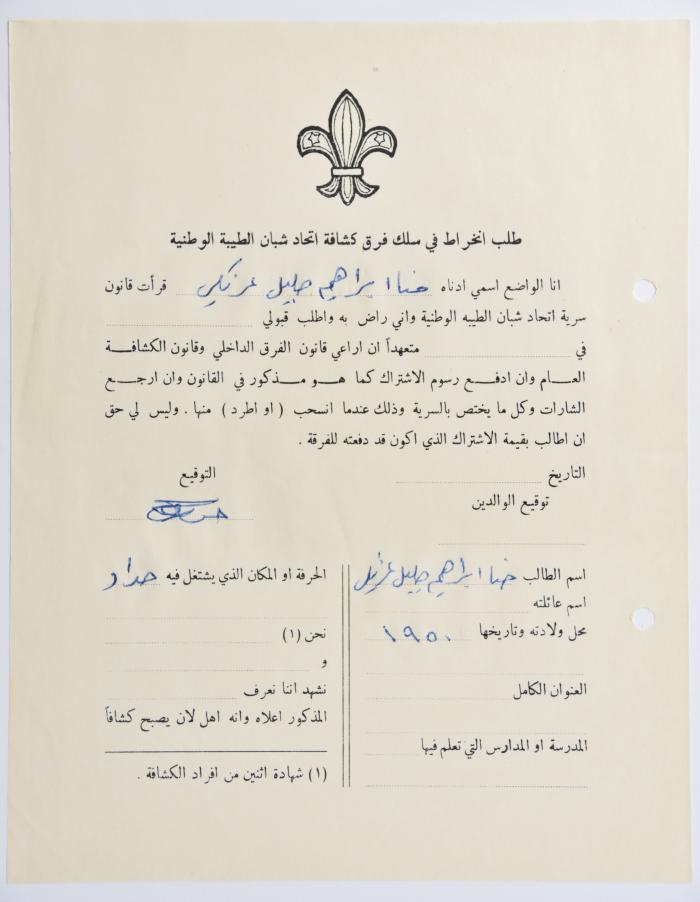 طلب انخراط في سلك فرق كشافة اتحاد شبان الطيبة الوطنية
انا الواضع اسمي ادناه حنا ابراهيم جليل قرأت قانون
سرية اتحاد شبان الطيبه الوطنية واني راض به واطلب قبولي
في متعهداً ان اراعي قانون الفرق الداخلي وقانون الكشافة
العام وان ادفع رسوم الاشتراك كما هو مذكور في القانون وان ارجع
الشارات وكل ما يختص بالسرية وذلك عندما انسحب ( او اطرد ) منها . وليس لي حق
ان اطالب بقيمة الاشتراك الذي اكون قد دفعته للفرقة .
التاريخ
التوقيع
توقيع الوالدين
اسم الطالب حنا ابراهيم جليل
اسم عائلته
محل ولادته وتاريخها ١٩٥٠
العنوان الكامل
المدرسة او المدارس التي تعلم فيها
الحرفة او المكان الذي يشتغل فيه حداد
نحن (١)
و
نشهد اننا نعرف
المذكور اعلاه وانه اهل لان يصبح كشافاً
(١) شهادة اثنين من افراد الكشافة .